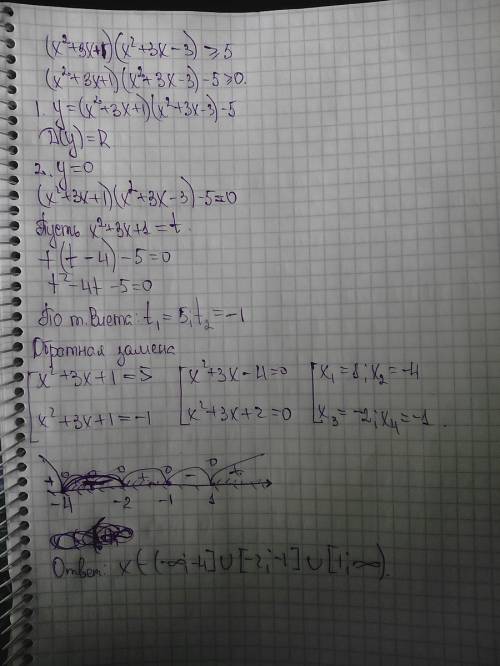 (x²+3x+1)(x²+3x-3)≥5
(x²+3x+1)(x²+3x-3)-5≥0.
1. y=(x²+3x+1)(x²+3x-3)-5
D(y)=R
2. y=0
(x²+3x+1)(x²+3x-3)-5=0
Пусть x²+3x+1=t
t(t-4)-5=0
t²-4t-5=0
По т. Виета: t₁=5; t₂=-1
Обратная замена
[x²+3x+1=5 [x²+3x-4=0 [x₁=1; x₂=-4
x²+3x+1=-1 x²+3x+2=0 x₃=-2; x₄=-1.
+ + - +
-4 -2 -1 1
Ответ: x∈(-∞;-4]∪[-2;-1]∪[1;∞).